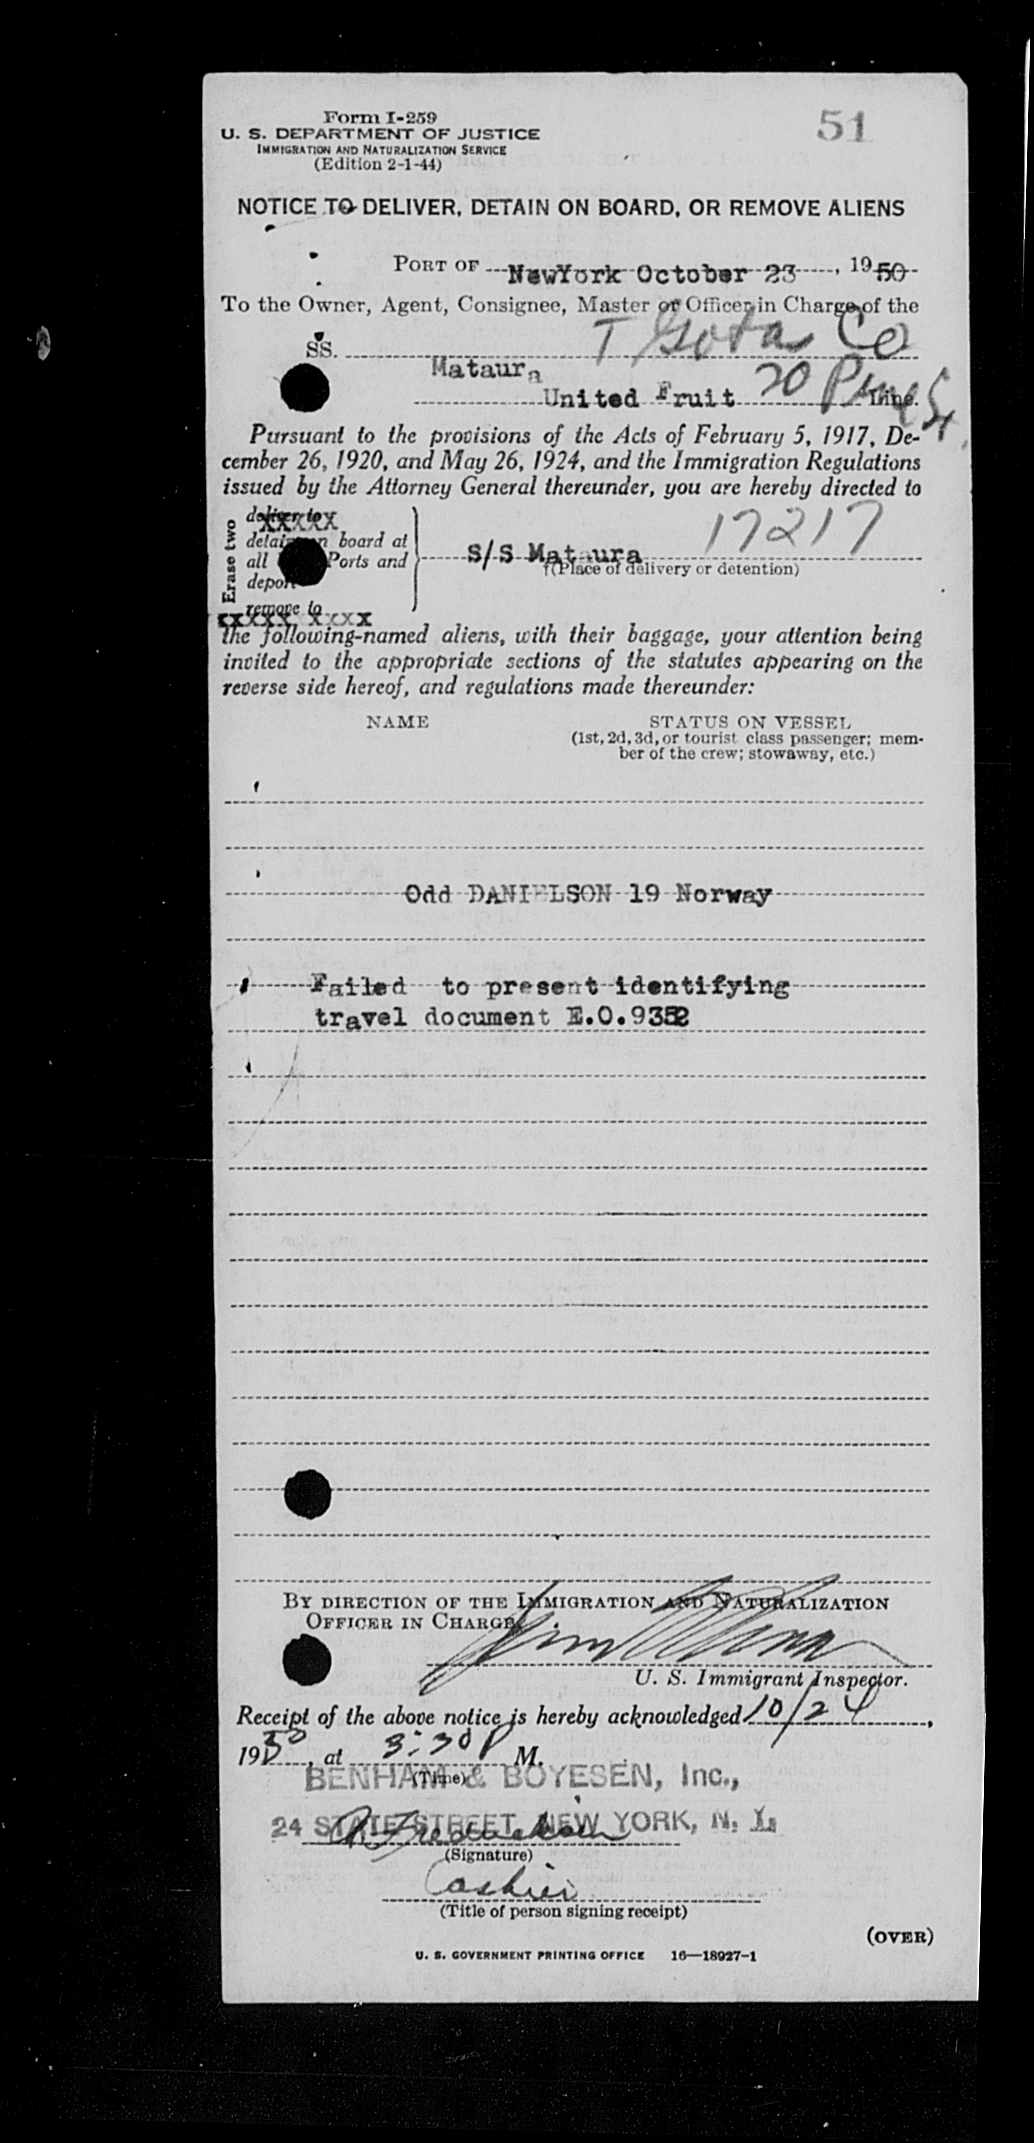 Form I-259
51
U. S. DEPARTMENT OF JUSTICE
IMMIGRATION AND NATURALIZATION SERVICE
(Edition 2-1-44)
NOTICE TO DELIVER, DETAIN ON BOARD, OR REMOVE ALIENS
PORT OF NewYork October 23, 1950
To the Owner, Agent, Consignee, Master or Officer in Charge of the
SS. Mataura
T Co
United Fruit Line.
20 Pine St.
Pursuant to the provisions of the Acts of February 5, 1917, De-
cember 26, 1920, and May 26, 1924, and the Immigration Regulations
issued by the Attorney General thereunder, you are hereby directed to
Erase two
deliver to
xxxxx
detain on board at
all Ports and
deport
remove to
xxxxx xxxx
S/S Mataura
17217
(Place of delivery or detention)
the following-named aliens, with their baggage, your attention being
invited to the appropriate sections of the statutes appearing on the
reverse side hereof, and regulations made thereunder:
NAME
STATUS ON VESSEL
(1st, 2d, 3d, or tourist class passenger; mem-
ber of the crew; stowaway, etc.)
Odd DANIELSON 19 Norway
Failed to present identifying
travel document E.O.9352
BY DIRECTION OF THE IMMIGRATION AND NATURALIZATION
OFFICER IN CHARGE
U. S. Immigrant Inspector.
Receipt of the above notice is hereby acknowledged 10/24,
1950, at 3:30 P M.
(Time)
BENHAM & BOYESEN, Inc.,
24 STATE STREET, NEW YORK, N. Y.
(Signature)
Cashier
(Title of person signing receipt)
(OVER)
U. S. GOVERNMENT PRINTING OFFICE 16—18927-1